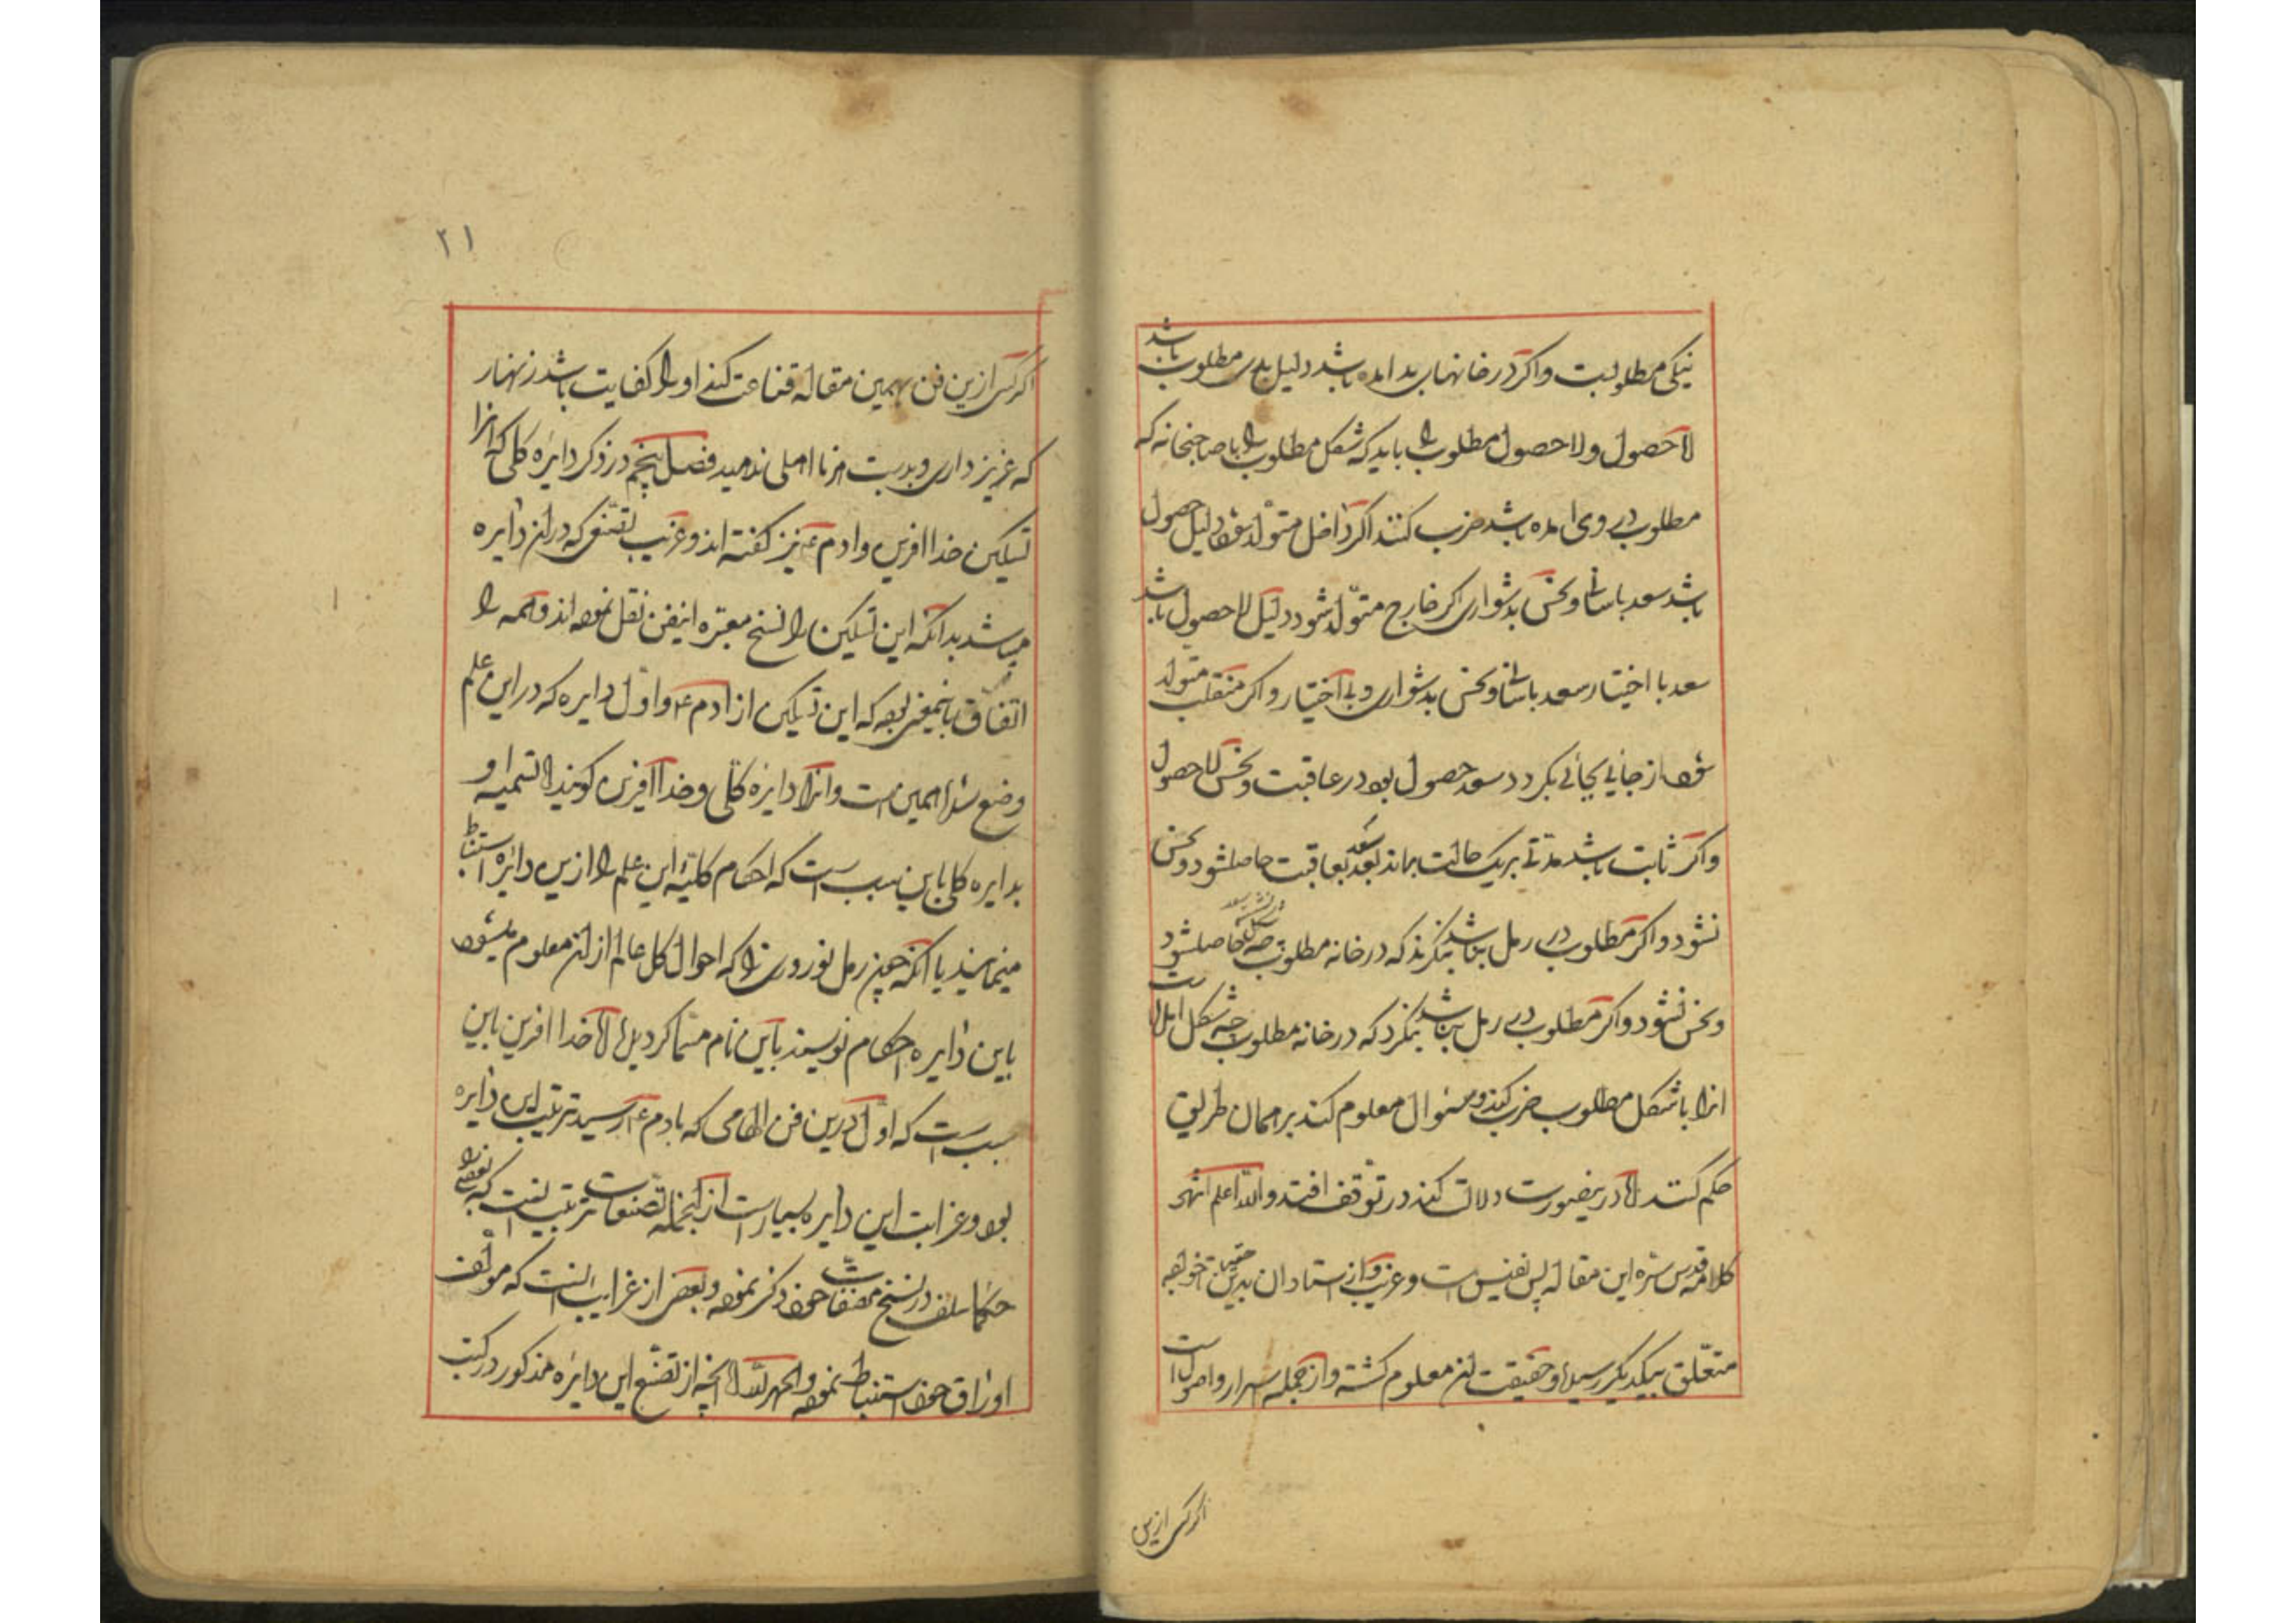 نیکی مطلوبست و اکر در خانهای بد امده باشد دلیل بدی مطلوب باشد
لا حصول ولا حصول مطلوب را باید که شکل مطلوب را با صاحبخانه که
مطلوب در وی امده باشد ضرب کنند اکر داخل متولد شود دلیل حصول
باشد سعد باسانی و نحس بدشواری اکر خارج متولد شود دلیل لا حصول باشد
سعد با اختیار سعد باسانی و نحس بدشواری و بی اختیار و اکر منقلب متولد
شود از جائی بجائی بکردد سعد حصول بود در عاقبت و نحس لا حصول
و اکر ثابت باشد مدتی بریک حالت بماند بعد سعد بعاقبت حاصلشود و نحس
نشود و اکر مطلوب در رمل نباشد بنکرند که در خانه مطلوب چه شکل حاصلشود
و نحس نشود و اکر مطلوب در رمل نباشد بنکرد که در خانه مطلوب چه شکل است
انرا با شکل مطلوب ضرب کند و مسئوال معلوم کند بر همان طریق
حکم کند اما درینصورت دلالت کند در توقف افتد والله اعلم انتهی
کلامه قدس سره این مقاله بس نفیس است و غریب و از استادان بدین
متعلق بیکدیکر رسیده و حقیقت ان معلوم کشته و از جمله اسرار و اصول است
اکر کسی ازین
۲۱
اکر کسی ازین فن بهمین مقاله قناعت کند او را کفایت باشد زنهار
که عزیز داری و بدست هر نا اهلی ندهید فصل پنجم در ذکر دایره کلی که انرا
تسکین خدا افرین و ادم ع نیز کفته اند و غریب تصنعی که در ان دایره
میباشد بدانکه این تسکین را نسخ معتبره اینفن نقل نموده اند و همه را
اتفاق باینمعنی بوده که این تسکین از ادم ع و اول دایره که در این علم
وضع شده همین است و انرا دایره کلی و خدا افرین کویند اما تسمیه او
بدایره کلی باین سبب است که احکام کلیه این علم را ازین دایره استنباط
مینمایند یا انکه چون رمل نوروزی را که احوال کل عالم از ان معلوم میشود
باین دایره احکام نویسند باین نام مسما کردیده اما خدا افرین باین
سبب است که اول درین فن الهامی که بادم ع رسید ترتیب این دایره
بود و غرابت این دایره بسیار است از انجمله تصنعات ترتیب است که بعضی را
حکما سلف در نسخ مصنفات خود ذکر نموده و بعضی از غرایب انست که مولف
اوراق خود استنباط نموده والحمد لله اما انچه از تصنع این دایره مذکور در کتب